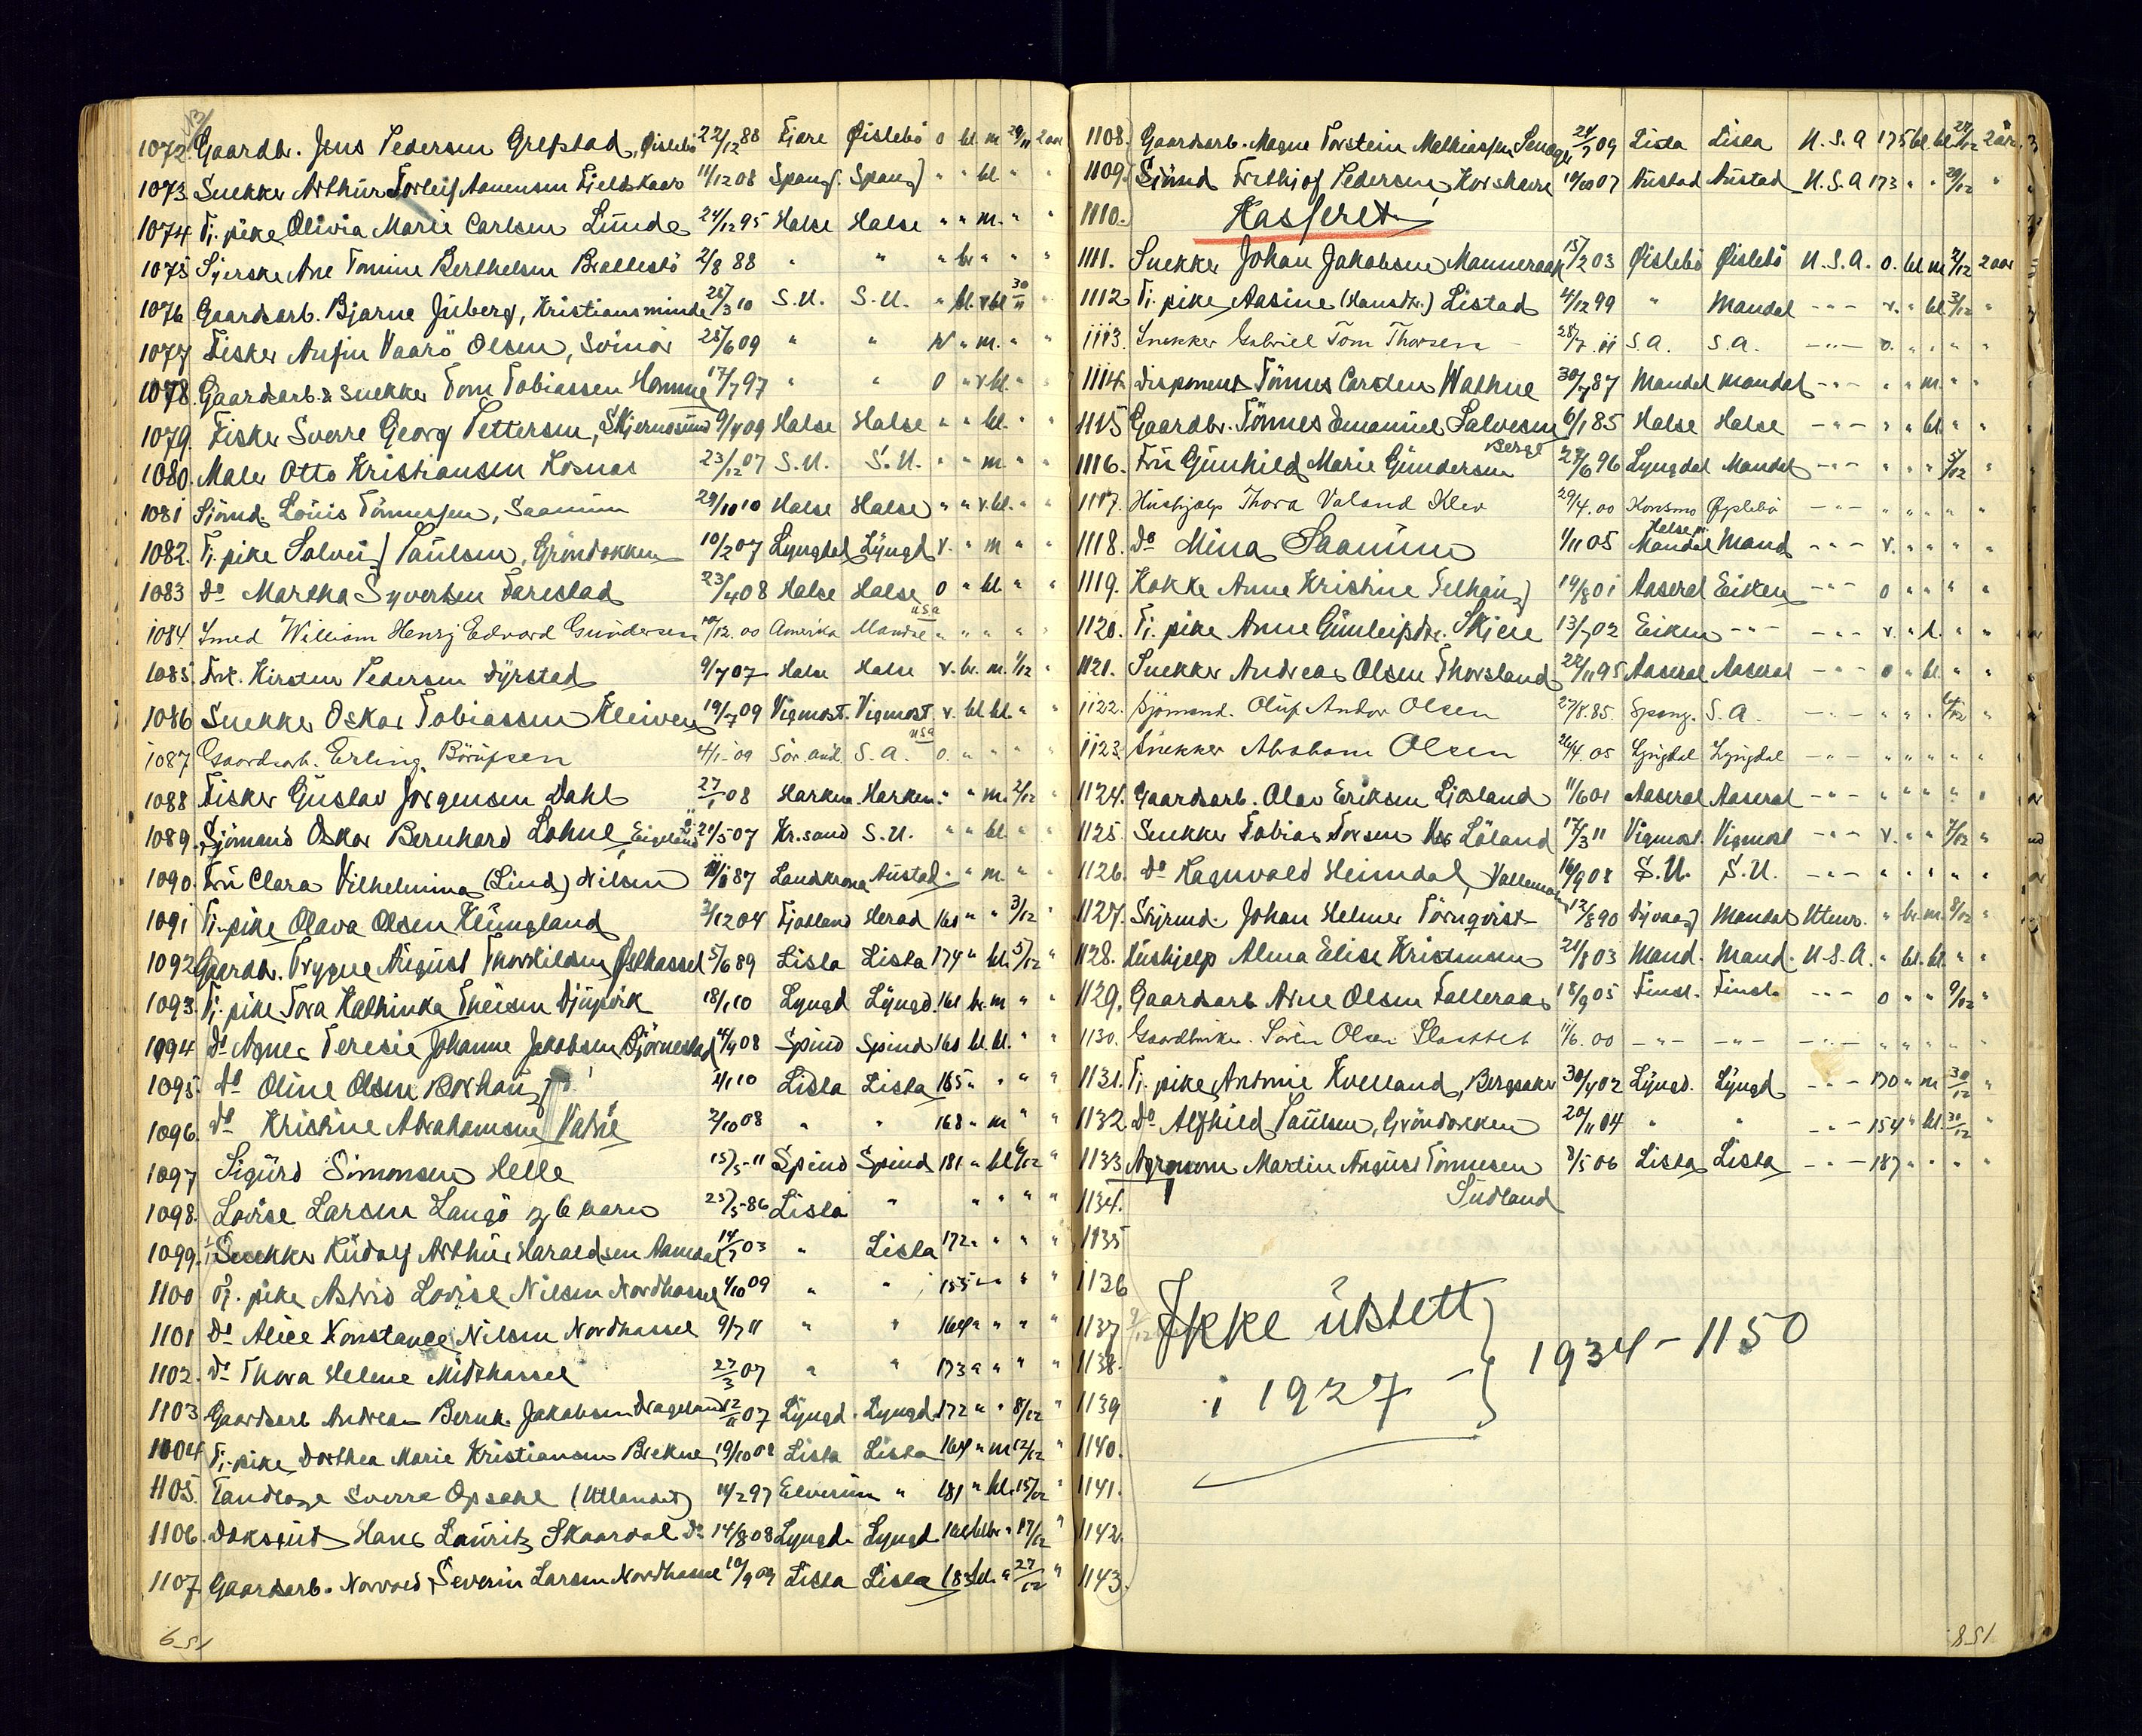 1072. Gaardbr. Jens Pedersen Grefstad, Øislebö 22/12 88 Fjære Øislebö 0 bl. m 29/11 2 aar
1073. Snekker Arthür Torleif Aanensen Fjeldskaar 11/12 08 Spang. Spang. " " bl. " "
1074. Tj. pike Olivia Marie Carlsen Lünde 24/12 95 Halse Halse " " m. " "
1075. Syerske Ane Tomine Berthelsen Brattestö 2/8 88 " " " br " " "
1076. Gaardsarb. Bjarne Jüberg, Kristiansminde 28/3 10 S.U. S.U. " bl. v.bl. 30/11 "
1077. Fisker Anfin Vaarö Olsen, Svinör 25/6 09 " " N " m. " "
1078. Gaardsarb. & snekker Tom Tobiassen Homme 17/7 97 " " 0 " v.bl. " "
1079. Fisker Sverre Georg Pettersen, Skjernösünd 9/4 09 Halse Halse " " bl. " "
1080. Maler Otto Kristiansen Kosnas 23/12 07 S.U. S.U. " " m. " "
1081 Sjömd. Loüis Tönnessen, Saanüm 29/10 10 Halse Halse " " v.bl. " "
1082. Tj. pike Solveig Paülsen, Gröndokken 10/2 07 Lyngdal Lyngd v. " m " "
1083 Do Martha Syvertsen Farestad 23/4 08 Halse Halse 0 " bl. " "
1084. Smed William Henry Edvard Gundersen 10/12.00 Amerika Mandal USA " " " " "
1085. Frk. Kirsten Pedersen Dyrstad 9/7 07 Halse Halse v. br. m. 1/12 "
1086 Snekker Oskar Tobiassen Kleiven 19/7 09 Vigmost. Vigmost. v. bl. bl. " "
1087 Gaardsarb. Erling Börüfsen 4/1-09 Sør. aud. S.A. USA 0. " " " "
1088 Fisker Güstav Jørgensen Dahl 27/1 08 Harkm. Harkm. " " m. 2/12 "
1089. Sjömand Oskar Bernhard Lohne, Eigeland 21/5 07 Kr.sand S.U. " " bl. " "
1090. Frü Clara Vilhelmina (Lind) Nilsen 87 Landskrona Aüstad " " m. " "
1091 Tj. pike Olava Olsen Klüngland 3/12 04 Fjotland Herad 160 " " 3/12 "
1092. Gaardbr. Trygve Aügüst Thorkildsen Østhassel 5/6 89 Lista Lista 174 " bl. 5/12 "
1093. Tj. pike Tora Kathinka Theisen Djüpvik 18/1 10 Lyngd Lyngd. 161 br. m " "
1094 Do Agnes Teresie Johanne Jakobsen Björnestad 08 Spind Spind 160 bl. bl. " "
1095. Do Oline Olsen Borhaüg 4/1 10 Lista Lista 165 " " " "
1096. Do Kristine Abrahamsen Vatne 2/10 08 " " 168 " m " "
1097 Sigürd Simonsen Helle 15/5-11 Spind Spind 181 " bl. 6/12 "
1098. Lovise Larsen Langö og 6 barn 23/5-86 Lista " " " " " "
1099. Snekker Rüdolf Arthür Haraldsen Aamdal 14/7 03 " Lista 172 " " " "
1100 Tj. pike Astrid Lovise Nilsen Nordhassel 4/10 09 " " 155 " " " "
1101 Do Alice Konstance Nilsen Nordhassel 9/7 11 " " 164 " " " "
1102. Do Thora Helene Midthassel 27/3 07 " " 173 " " " "
1103 Gaardsarb Andreas Bernh. Jakobsen Drageland 12/11 07 Lyngd. Lyngd. 172 " " 8/12 "
1104 Tj. pike Dorthea Marie Kristiansen Brekne 19/10 08 Lista Lista 164 " m 12/12 "
1105. Tandlæge Sverre Opsahl (Utlandet) 14/2 97 Elverüm " 181 " bl. 15/12 "
1106. Doksent Hans Laüritz Skaardal Do 14/8 08 Lyngd. Lyngd. bl br " 17/12 "
1107. Gaardsarb. Norvald Severin Larsen Nordhassel 10/9 09 Lista Lista 183 bl. " 27/12 "
651
1108. Gaardsarb. Magne Torstein Mathiassen 21/7 09 Lista Lista U.S.A 175 bl. bl. 27/12 2 aar.
1109. Sjömd Frithjof Pedersen, Korshavn 10/10 07 Aüstad Aüstad U.S.A 173 " " 29/12 "
1110. Kasseret
1111. Snekker Johan Jakobsen Manneraak 15/2 03 Øislebö Øislebö U.S.A. 0. bl. m 2/12 2 aar
1112. Tj. pike Aasine (Hansdtr.) Listad 4/12 99 " Mandal -"- v. " bl. 3/12 "
1113. Snekker Gabriel Tom Thorsen 28/7.11 S.A. S.A. -"- 0. " " " "
1114. Disponent Tönnes Carsten Wathne 30/7 87 Mandal Mandal -"- " " m. " "
1115 Gaardbr. Tönnes Emanüel Salvesen 6/1 85 Halse Halse -"- " " bl. " "
1116. Frü Günhild Marie Gündersen Berge 27/6 96 Lyngdal Mandal -"- " " " 5/12 "
1117. Hüshjælp Thora Valand Klev 29/4.00 Konsmo Øyslebö -"- " " " " "
1118. Do Mina Saanüm 1/11 05 Halse Mandal Mand -"- v. " " " "
1119. Kokke Anne Kristine Telhaüg 19/8 01 Aaseral Eiken -"- 0 " " " "
1120. Tj. pike Anne Günleifsdtr. Skjere 13/7 02 Eiken -"- -"- v. " " " "
1121. Snekker Andreas Olsen Thorsland 22/11 95 Aaseral Aaseral -"- 0 " bl. " "
1122. Sjömand. Olüf Andor Olsen 27/8.85. Spang. S.A. -"- " " " 6/12 "
1123. Snekker Abraham Olsen 26/4.05 Lyngdal Lyngdal -"- " " " " "
1124. Gaardsarb. Olav Eriksen Ljosland 11/6 01 Aaseral Aaseral -"- " " " " "
1125. Snekker Tobias Torsen Løland 17/3 11 Vigmost. Vigmost -"- v. " " 7/12 "
1126. Do Ragnvald Heimdal, 16/9 08 S.U. S.U. -"- " " " " "
1127. Johan Helmer Törnqvist 12/8 90 Dypvaag Mandal Utenr. " br. m. 8/12 "
1128. Hüshjelp Alma Elise Kristensen 21/8 03 Mand. Mand. U.S.A. " bl. bl. " "
1129. Gaardsarb Arne Olsen Falleraas 18/9 05 Finsl. Finsl. -"- 0 " " 9/12 "
1130. Gaardbruker. Sören Olsen Slaattet 11/6.00 -"- -"- -"- " " " " "
1131. Tj. pike Antonie Kvelland, Bergsaker 30/4 02 Lyngd. Lyngd -"- 170 " m 30/12 "
1132. Do Alfhild Paülsen, Gröndokken 20/11 04 " " -"- 154 " bl. 30/12 "
1133 Agronom Martin Aügüst Tönnesen 8/5 06 Lista Lista -"- 187 " " " "
1134. Sudland
1135
1136
1137 Ikke üstett
1138.
1139 i 1927 } 1934-1150
1140.
1141.
1142.
1143.
851